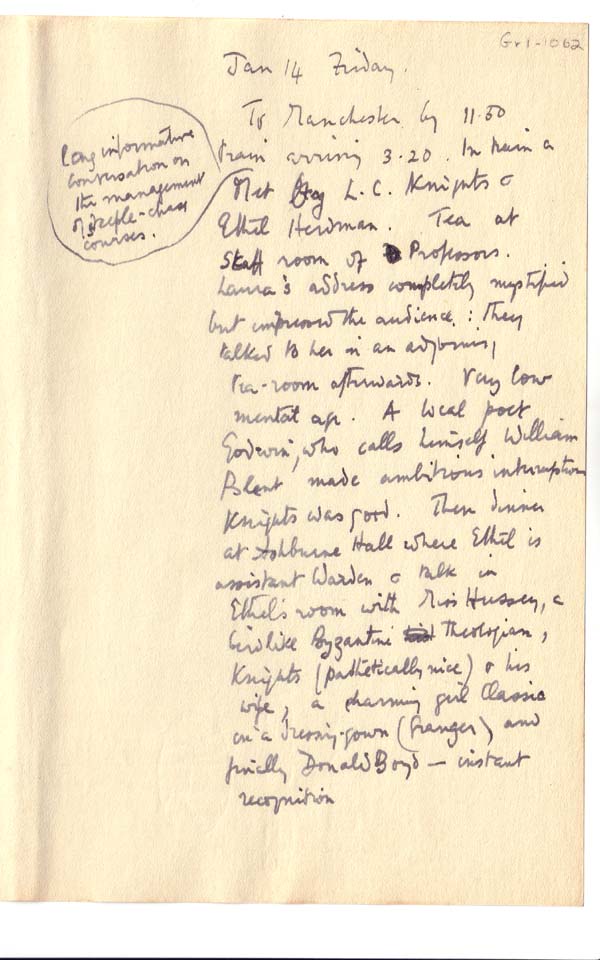 Gr1-1062
Jan 14 Friday.
To Manchester by 11.50
train arriving 3.20. In train a
long informative
conversation on
the management
of steeple-chase
courses.
Met by L.C. Knights &
Ethel Herdman. Tea at
Staff room of Professors.
Laura's address completely mystified
but impressed the audience : they
talked to her in an adjoining
tea-room afterwards. Very low
mental age. A local poet
Godwin, who calls himself William
Blent made ambitious interruptions
Knights was good. Then dinner
at Ashburne Hall where Ethel is
assistant Warden & talk in
Ethel's room with Miss Hussey, a
birdlike Byzantine Theologian,
Knights (pathetically nice) & his
wife, a charming girl Classic
in a dressing-gown (Granger) and
finally Donald Boyd — instant
recognition